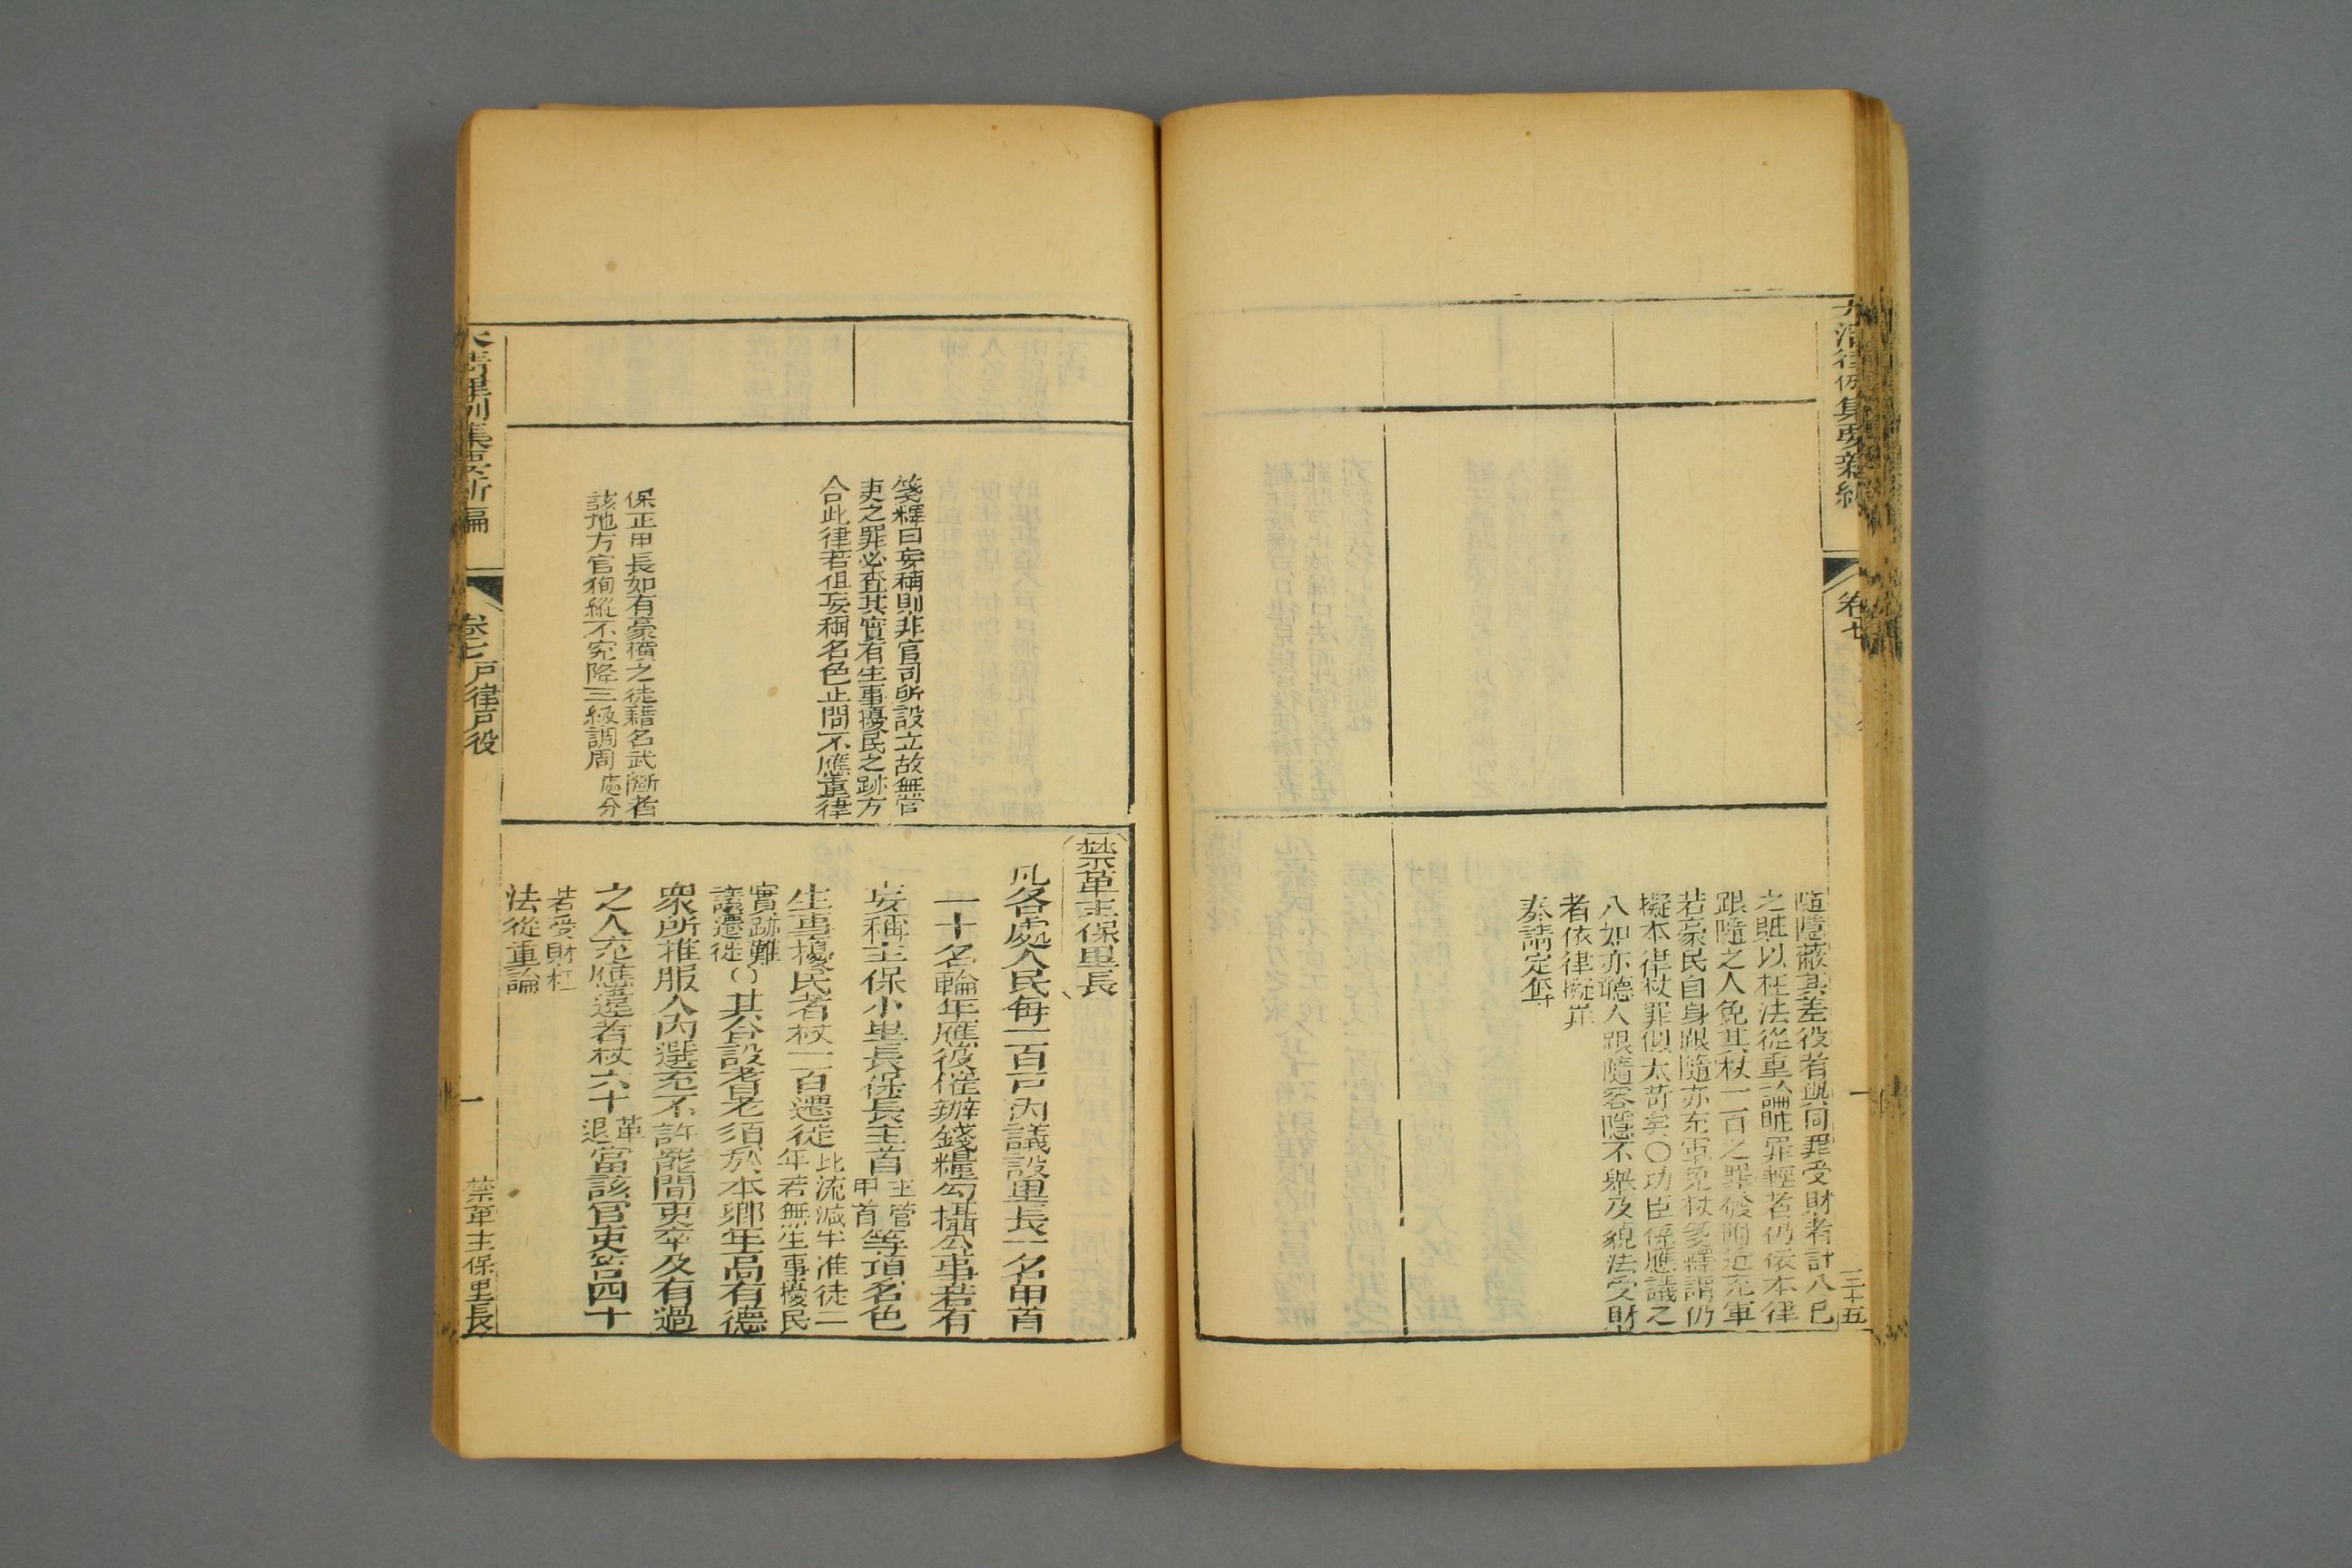 大清律例集要新編
卷七
三十五
隨隱蔽其差役者與同罪受財者計入已
之贓以枉法從重論贓罪輕者仍依本律
跟隨之人免其杖一百之罪發附近充軍
若豪民自身跟隨亦充軍免杖箋釋謂仍
擬本律杖罪似太苛矣〇功臣係應議之
人如亦聽人跟隨容隱不舉及貌法受財
者依律擬罪
奏請定奪
箋釋曰妄稱則非官司所設立故無官
吏之罪必查其實有生事擾民之跡方
合此律若但妄稱名色止問不應重律
保正甲長如有豪橫之徒藉名武斷者
該地方官狥縱不究降三級調周 處分
禁革主保里長
凡各處人民每一百戸內議設里長一名甲首
一十名輪年應役催辦錢糧勾攝公事若有
妄稱主保小里長保長主首主管甲首等項名色
生事擾民者杖一百遷徙比流減半准徒二年若無生事擾民
實跡難議遷徙〇其合設耆老須於本鄉年高有德
衆所推服人內選充不許罷閒吏卒及有過
之人充應違者杖六十革退當該官吏笞四十
若受財枉
法從重論
大清律例集要新編
卷七 戸律戸役
一
禁革主保里長